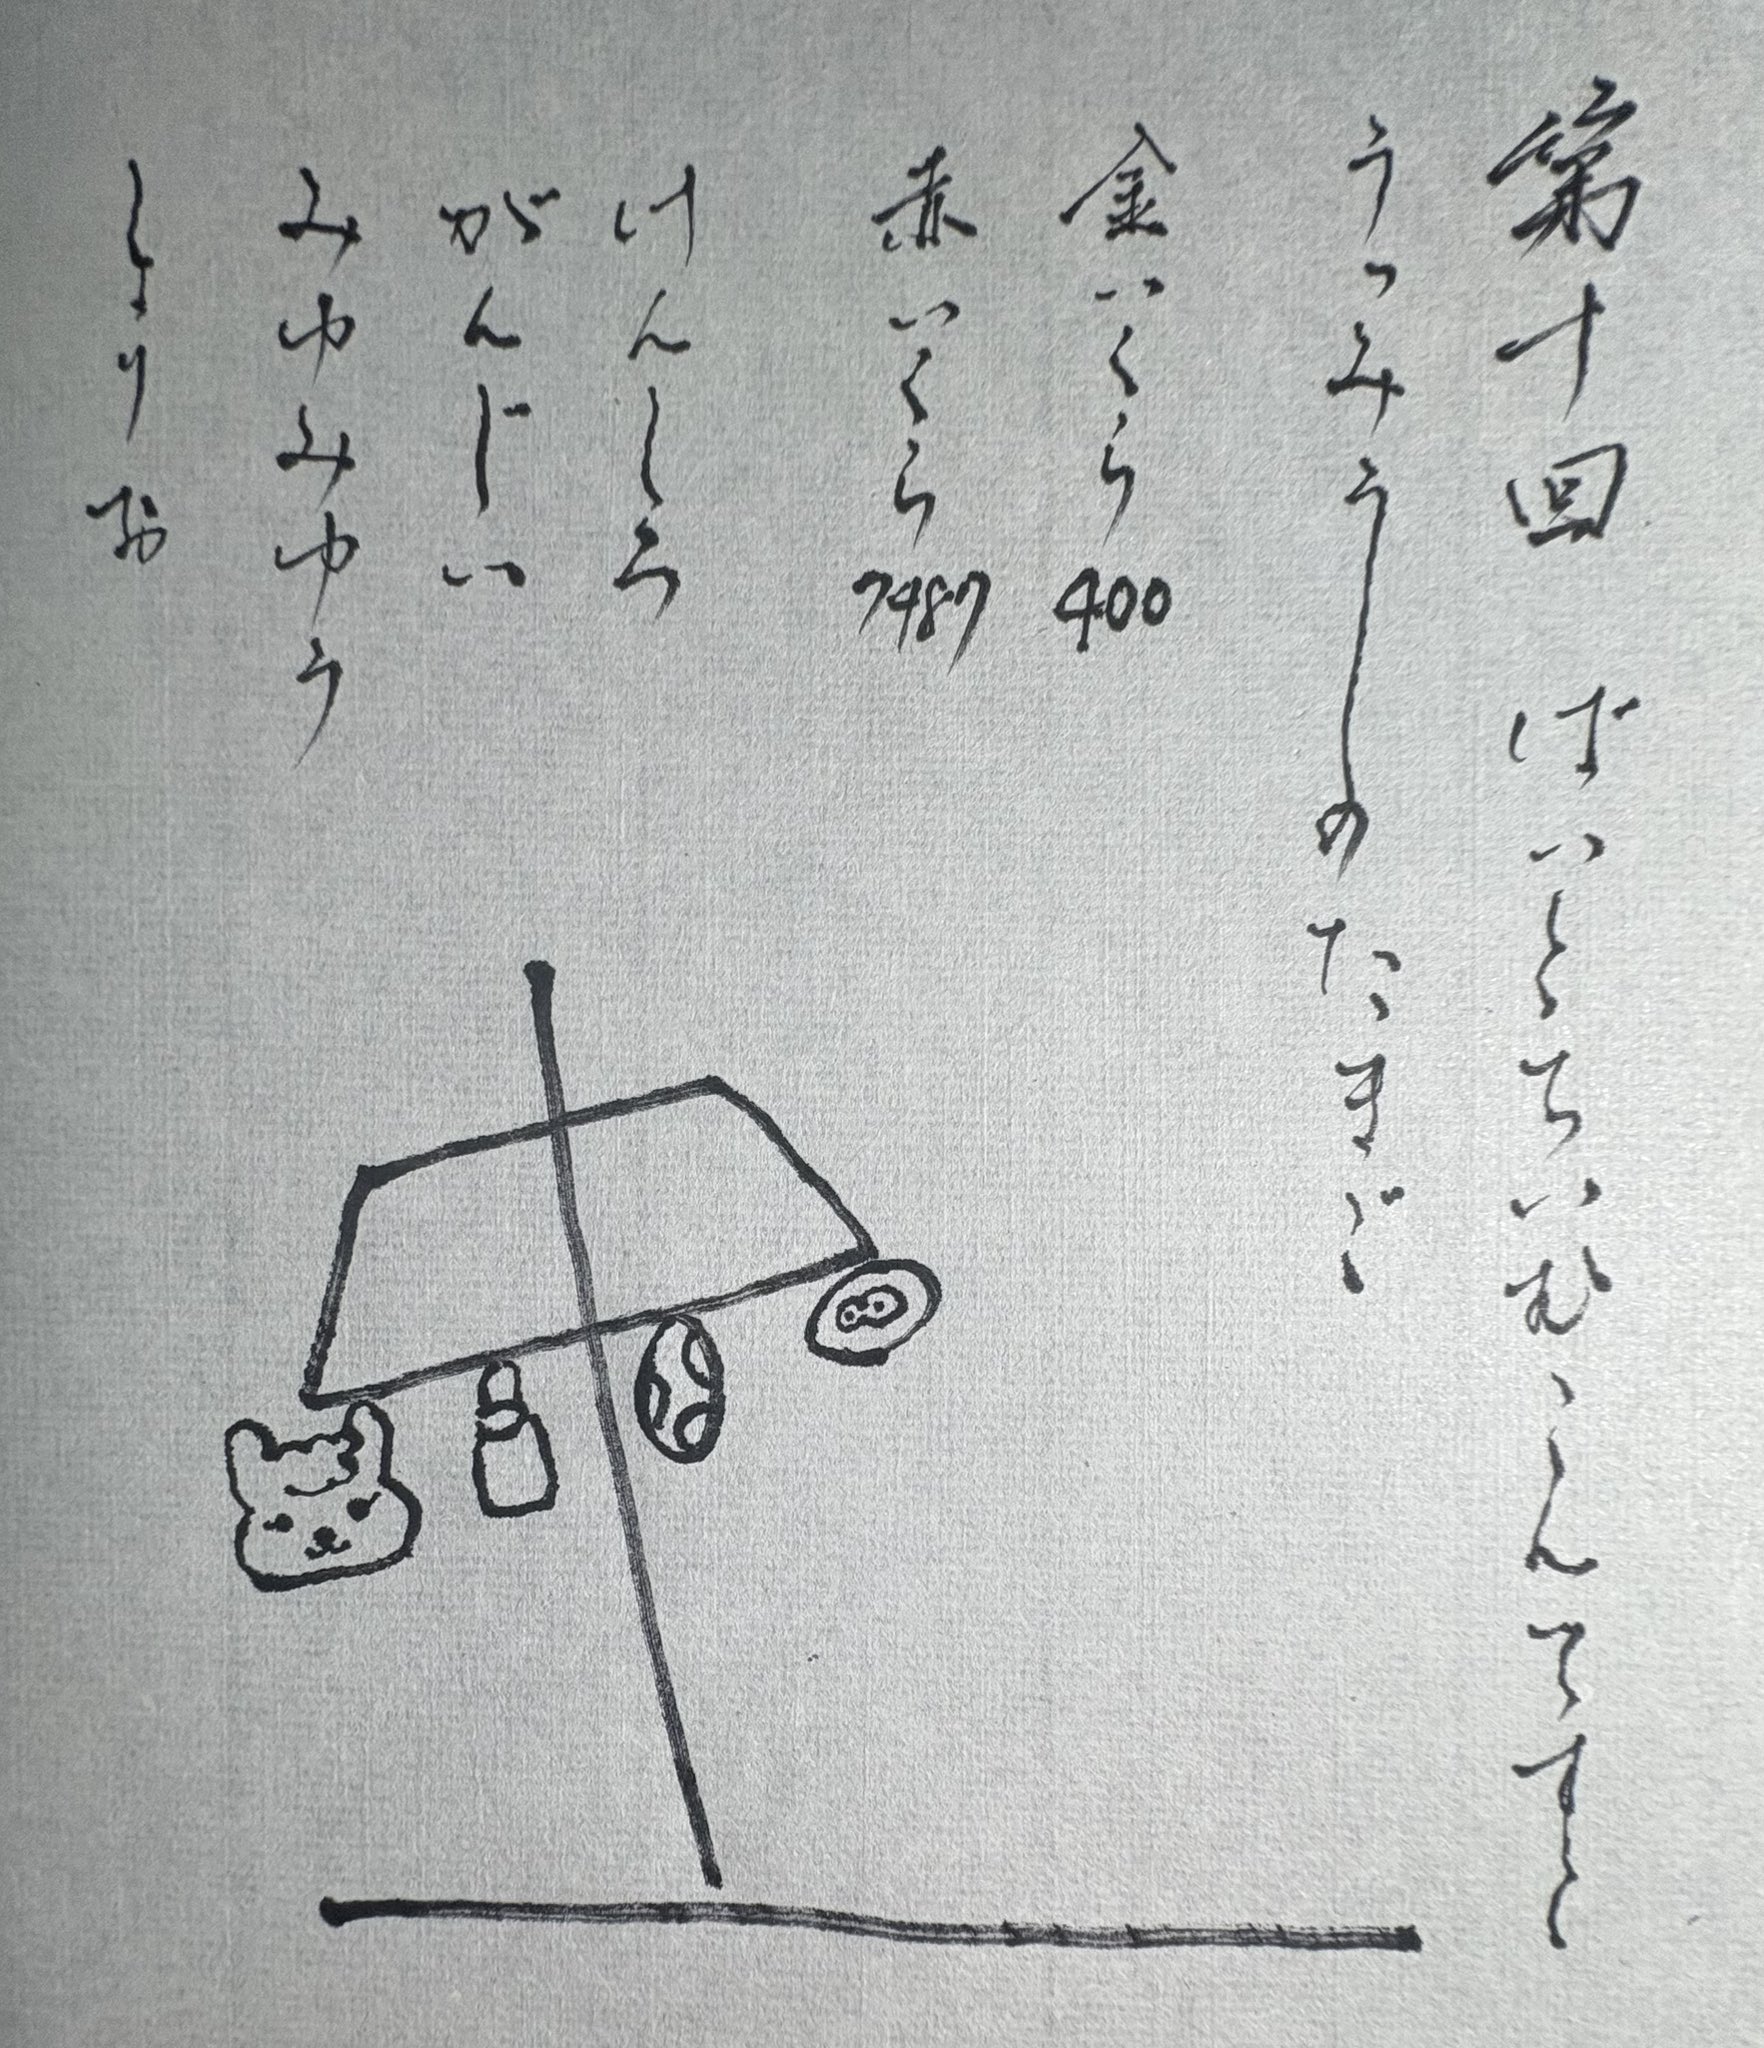 第十回 ばいとちいむこんてすと
うっみうしのたまご
金いくら 400
赤いくら 7487
けんしろ
がんじい
みゆみゆう
しょりお